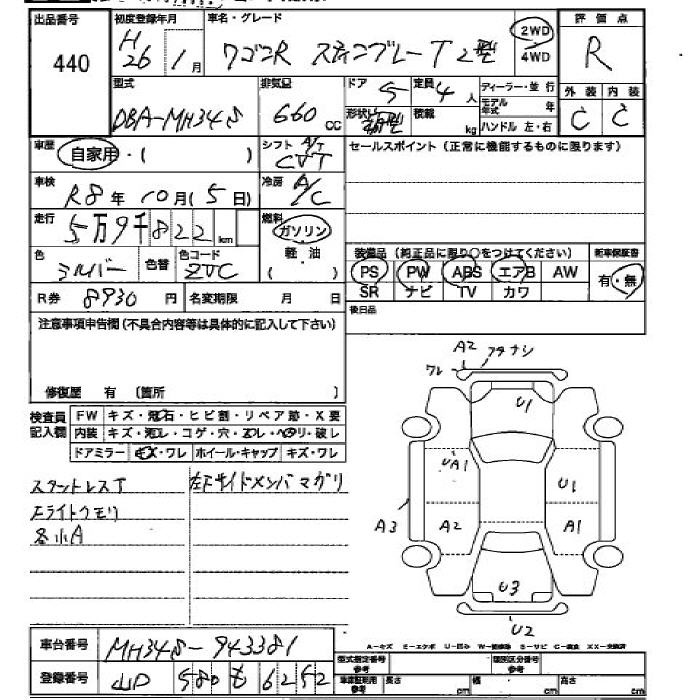 出品番号 初度登録年月 車名・グレード 評価点
440 H26 年 1月 ワゴンR スティングレーT 2型 2WD 4WD R
型式 排気量 ドア 5 定員 4人 ディーラー・並行 外装 内装
DBA-MH34S 660cc 形状 箱型 積載 kg モデル年式 年 ハンドル 左・右 C C
車歴 自家用・( ) シフト A/T CVT セールスポイント(正常に機能するものに限ります)
車検 R8年 10月(5日) 冷房 A/C
走行 5万9千822km 燃料 ガソリン 軽油 ( )
色 シルバー 色替 色コード Z7C 装備品(純正品に限り○をつけてください) 新車保証書
PS PW ABS エアB AW 有・無
SR ナビ TV カワ
R券 8930円 名変期限 月 日 後日品
注意事項申告欄(不具合内容等は具体的に記入して下さい)
修復歴 有 〔箇所 〕
検査員記入欄 FW キズ・飛石・ヒビ割・リペア跡・X要
内装 キズ・汚レ・コゲ・穴・スレ・ヘタリ・破レ
ドアミラー キズ・ワレ ホイール・キャップ キズ・ワレ
スタットレスT 左Fサイドメンバマガリ
Fライトクモリ
各小A
A2 フタナシ
ワレ
U1
UA1 U1
A3 A2 A1
U3
U2
A-キズ E-エクボ U-凹み W-補修跡 S-サビ C-腐食 XX-交換済
車台番号 MH34S-943381 型式指定番号 参考 類別区分番号 参考
登録番号 山口 580 も 6252 車庫証明用 参考 長さ cm 幅 cm 高さ cm